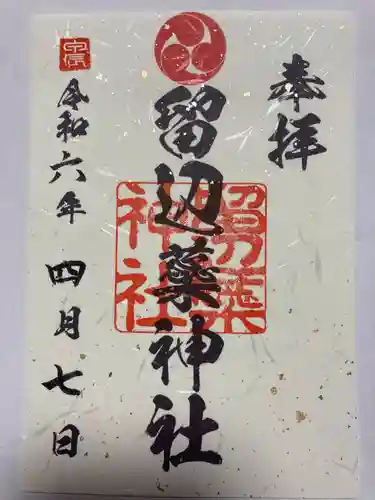 奉拝
留辺蘂神社
留辺蘂神社
令和六年四月七日
甲辰